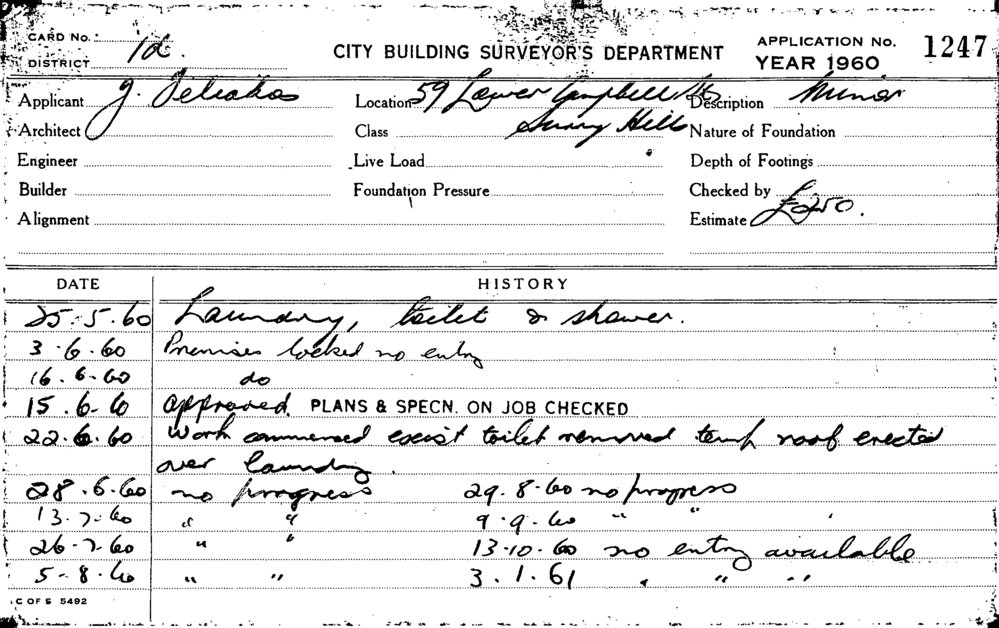 CARD No. 1d. CITY BUILDING SURVEYOR'S DEPARTMENT APPLICATION No. 1247
DISTRICT YEAR 1960
Applicant J. Location 59 Lower Campbell St Description Minor
Architect Class Surry Hills Nature of Foundation
Engineer Live Load Depth of Footings
Builder Foundation Pressure Checked by
Alignment Estimate £250.
DATE HISTORY
25.5.60 Laundry, toilet & shower.
3.6.60 Premises locked no entry
16.6.60 do
15.6.60 Approved. PLANS & SPECN. ON JOB CHECKED
22.6.60 Work commenced exist toilet removed temp roof erected
over laundry.
28.6.60 no progress 29.8.60 no progress
13.7.60 " " 9.9.60 " "
26.7.60 " " 13.10.60 no entry available
5.8.60 " " 3.1.61 " " "
C OF S 5492